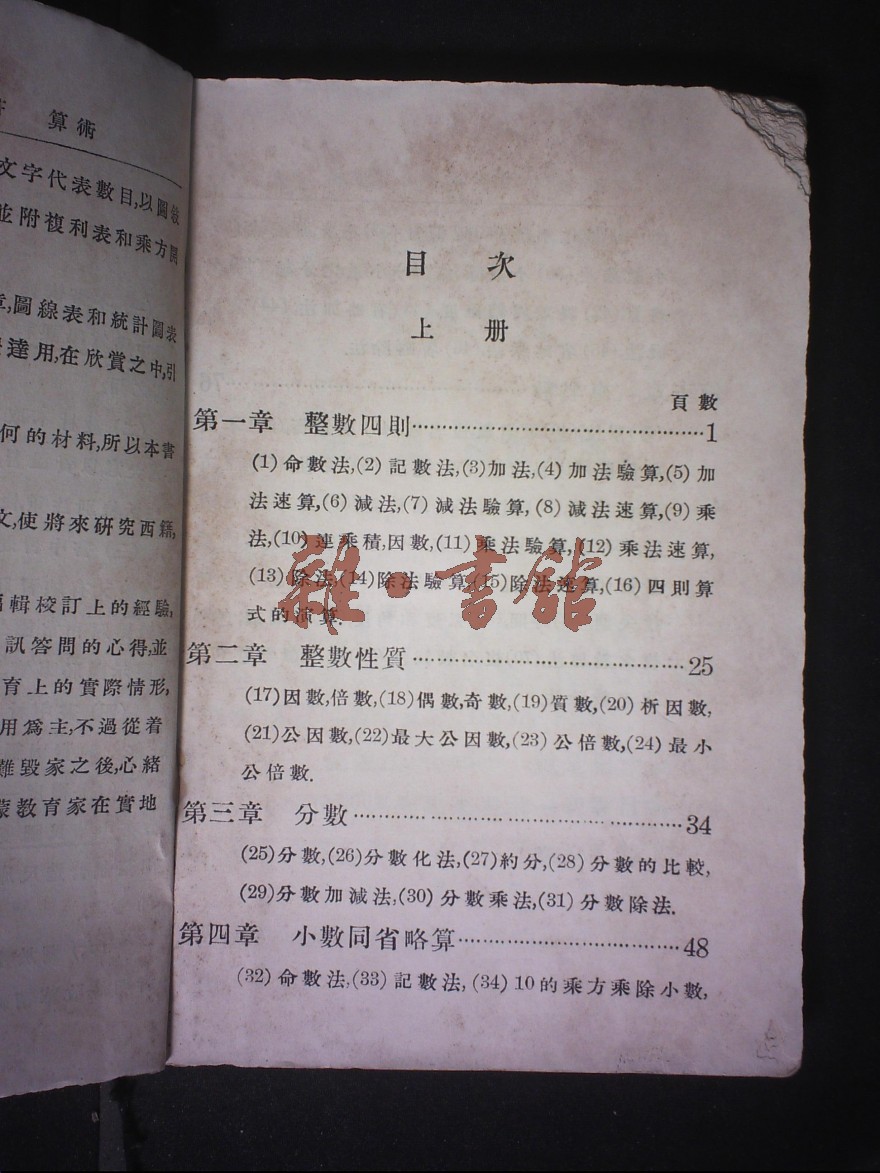 算術
文字代表數目,以圖
並附複利表和乘方開
圖線表和統計圖表
達用,在欣賞之中,引
何的材料,所以本書
文,使將來研究西籍,
輯校訂上的經驗,
訊答問的心得,並
育上的實際情形,
用爲主,不過從着
難毀家之後,心緒
教育家在實地
目 次
上 册
頁數
第一章 整數四則……………………………………1
(1)命數法,(2)記數法,(3)加法,(4)加法驗算,(5)加
法速算,(6)減法,(7)減法驗算,(8)減法速算,(9)乘
法,(10)連乘積,因數,(11)乘法驗算,(12)乘法速算,
(13)除法,(14)除法驗算,(15)除法速算,(16)四則算
式的演算.
雜·書館
第二章 整數性質……………………………………25
(17)因數,倍數,(18)偶數,奇數,(19)質數,(20)析因數,
(21)公因數,(22)最大公因數,(23)公倍數,(24)最小
公倍數.
第三章 分數……………………………………34
(25)分數,(26)分數化法,(27)約分,(28)分數的比較,
(29)分數加減法,(30)分數乘法,(31)分數除法.
第四章 小數同省略算……………………………48
(32)命數法,(33)記數法,(34)10的乘方乘除小數,